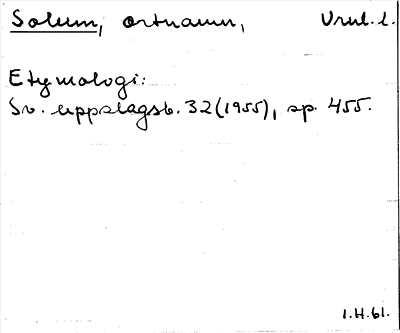 Solum, ortnamn, Vrml. l.
Etymologi:
Sv. uppslagsb. 32 (1955), sp. 455.
1.H.61.